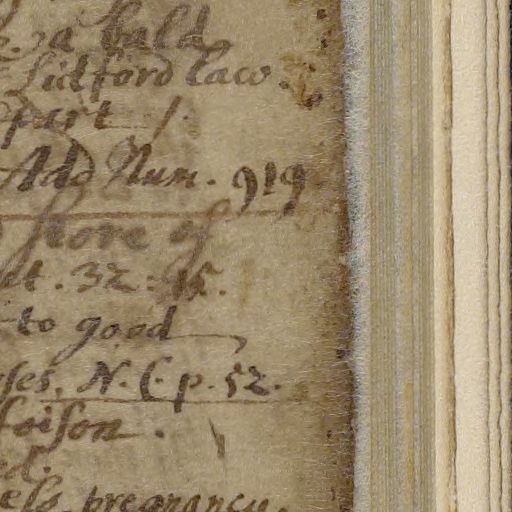 a bald
Lidford law.
part 1.
Add Num. 919
store of
32 : 15.
to good
ses. N. C. p. 52.
foison.
ed.
els, pregnancy.